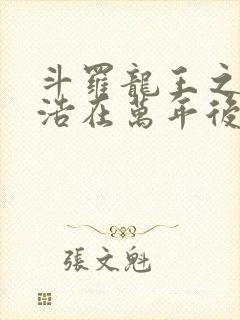 斗羅龍王之
浩在萬年後
張文魁